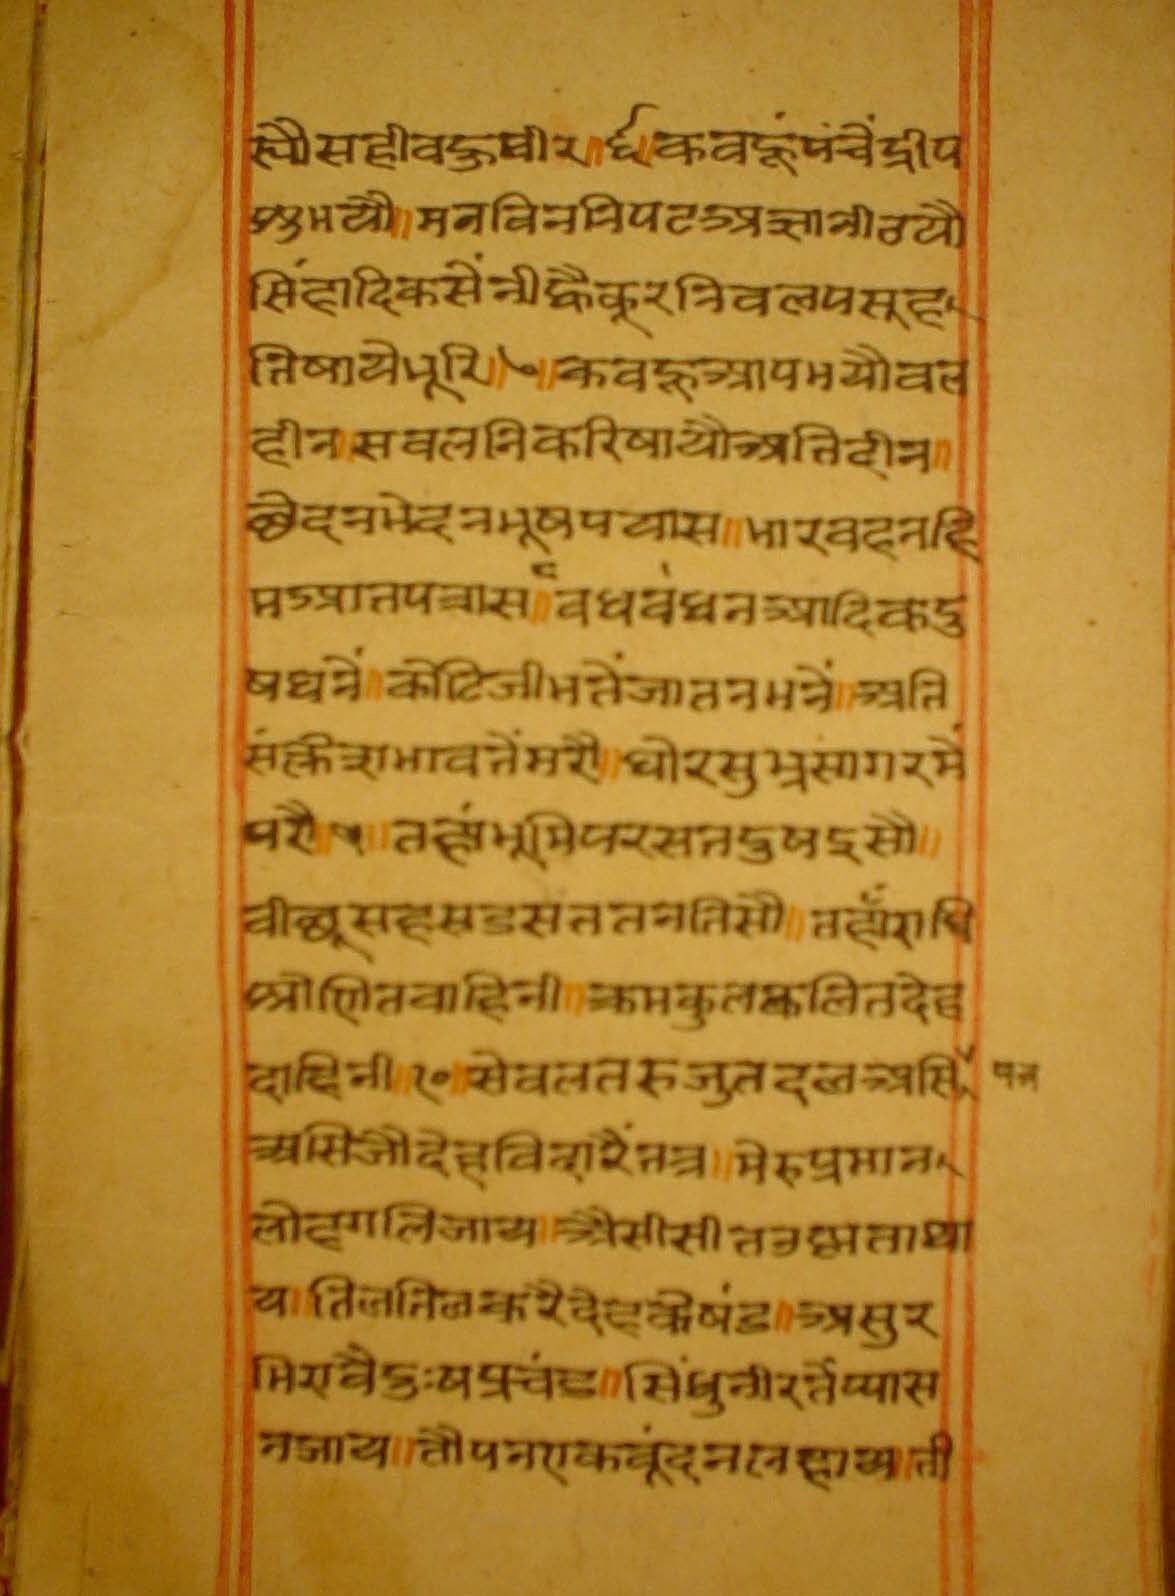 स्यौ सही वहु पीर ॥ ६ ॥ कवहूं पंचेंद्री प
शु भयौ ॥ मन विन निपट अज्ञानी थयौ
सिंहादिक सेंनी ह्वै कूर निवल पसू ह
ति षाये भूरि ॥ ७ ॥ कवहू आप भयौ वल
हीन । सवलनि करि षायौ अति दीन ॥
छेदन भेदन भूष पयास ॥ भार वहन हि
म आतप त्रास ॥ ८ वध वंधन आदिक दु
ष घनें ॥ कोटि जीभ तें जात न भनें ॥ अति
संक्लेश भाव तें मरौ ॥ घोर सुभ्र सागर में
परौ ॥ ९ ॥ तहां भूमि परसत दुष इसौ ॥
वीछू सहस डसें त तन तिसौ ॥ तहाँ राधि
श्रोणित वाहिनी ॥ क्रम कुल कलित देह
दाहिनी ॥ १० ॥ सेवल तरु जुत दल असि पत्र
असि जौं देह विदारैं तत्र ॥ मेरु प्रमान
लोह गलि जाय ॥ अैसी सीत उष्मता था
य ॥ तिल तिल करै देह के षंड ॥ असुर
भिरावै दुःष प्रचंड ॥ सिंधु नीर तें प्यास
न जाय ॥ तौ पन एक वूंद न लहाय ॥ ती